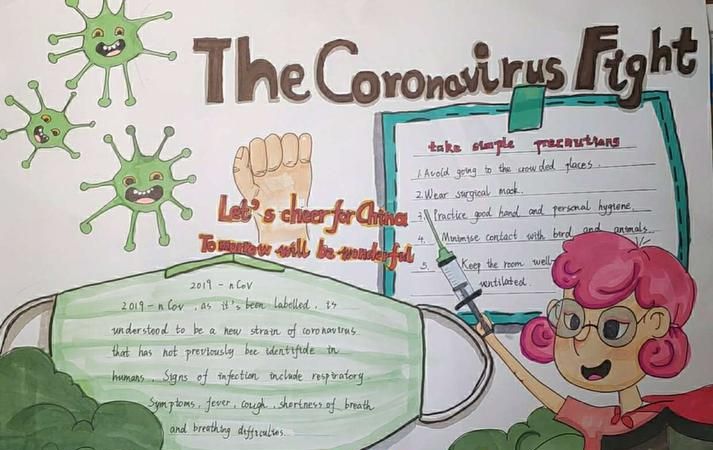 The Coronavirus Fight
take simple precautions
1. Avoid going to the crowded places.
2. Wear surgical mask.
3. Practice good hand and personal hygiene.
4. Minimise contact with bird and animals.
5. Keep the room well-
ventilated.
Let's cheer for China
Tomorrow will be wonderful
2019-nCoV
2019-nCov, as it's been labelled, is
understood to be a new strain of coronavirus
that has not previously bee identifide in
humans. Signs of infection include respiratory
Symptoms, fever, cough, shortness of breath
and breathing difficulties.